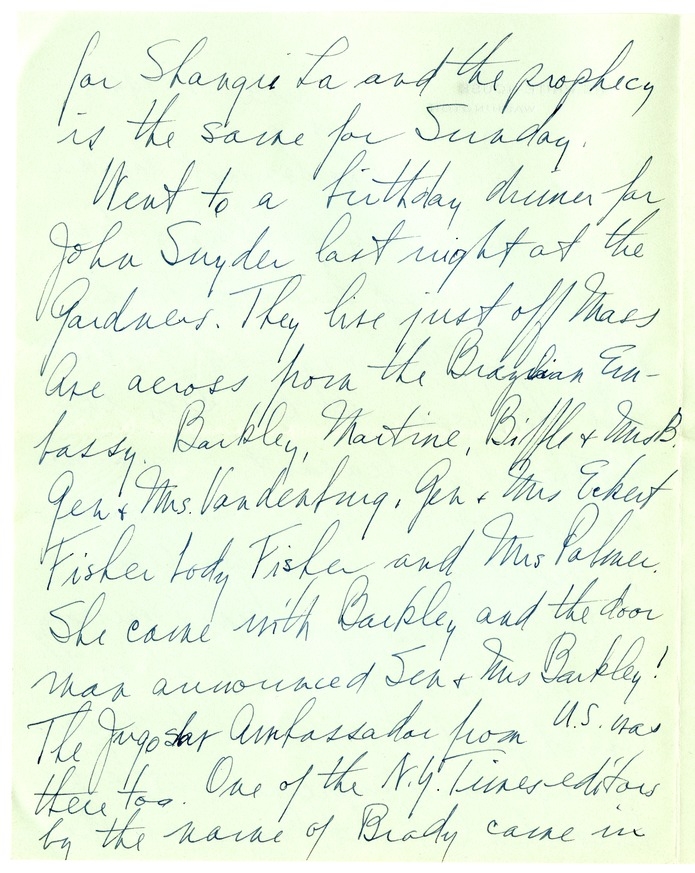 for Shangri La and the prophecy
is the same for Sunday.
Went to a birthday dinner for
John Snyder last night at the
Gardners. They live just off Mass
Ave across from the Brazilian Em-
bassy. Barkley, Martine, Biffle & Mrs B.
Gen & Mrs. Vandenburg, Gen & Mrs Eckert
Fisher body Fisher and Mrs Palmer.
She came with Barkley and the door
man announced Sen & Mrs Barkley!
The Jugoslav Ambassador from U.S. was
there too. One of the N.Y. Times editors
by the name of Brady came in